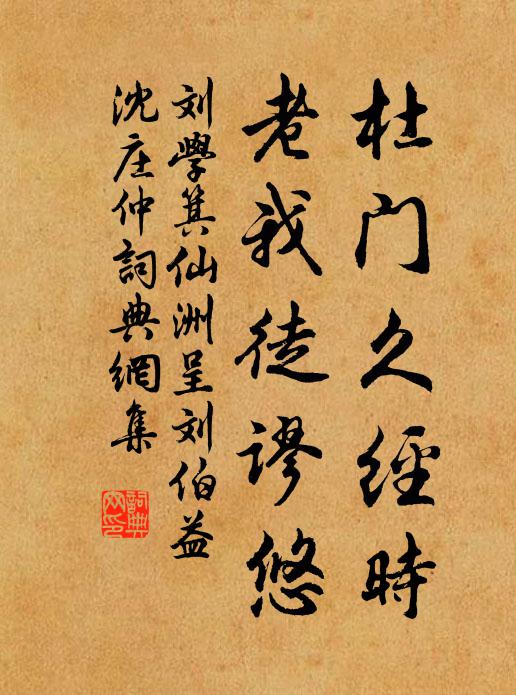 杜門久經時
老我徒謬悠
刘學箕仙洲呈刘伯益
沈庄仲詞典網集
詞典網印